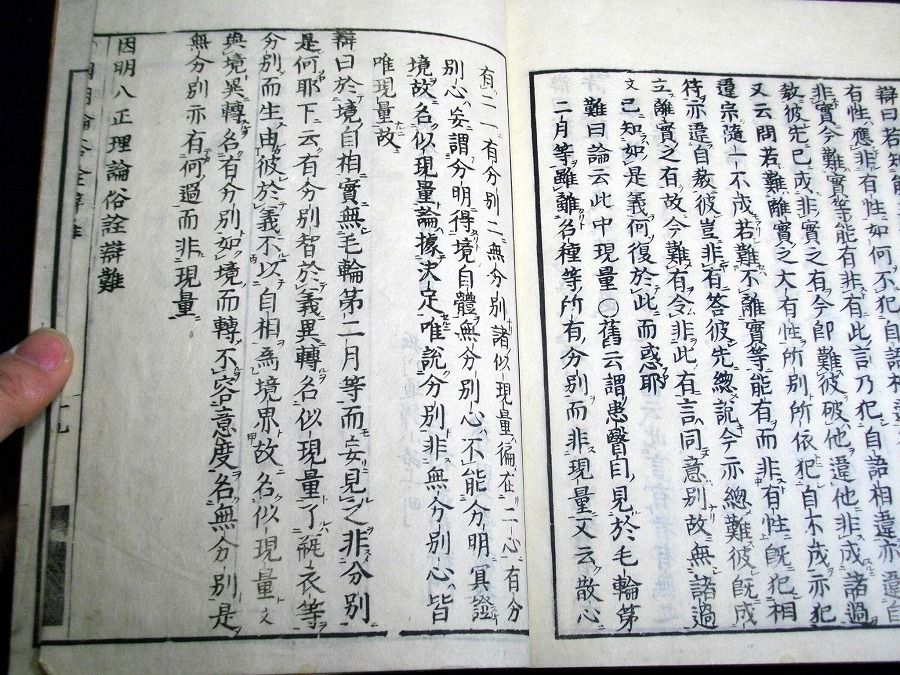 辯曰若知
有性應非有性如何不犯自語相違亦違自
非實今難實等能有非有此言乃犯自語相違亦違自
教彼先已成非實之有今即難彼破他違他非成諸過
又云問若難離實之大有性所別所依犯自不成亦犯
違宗隨一不成若難不離實等能有而非有性既犯相
待亦違自教彼豈非有答彼先總說今亦總難彼既成
立離實之有故今難有令非此有言同意別故無諸過
文已知如是義何復於此而惑耶
難曰論云此中現量〇舊云謂患瞖目見於毛輪第
二月等雖離名種等所有分別而非現量又云散心
有二一有分別二無分別諸似現量徧在二心有分
別心妄謂分明得境自體無分別心不能分明冥證
境故名似現量論據決定唯說分別非無分別心皆
唯現量故
辯曰於境自相實無毛輪第二月等而妄見之非分別
是何耶下云有分別智於義異轉名似現量了瓶衣等
分別而生由彼於義不以自相為境界故名似現量文
與境異轉名有分別如境而轉不容意度名無分別是
無分別亦有何過而非現量
因明八正理論俗詮辯難